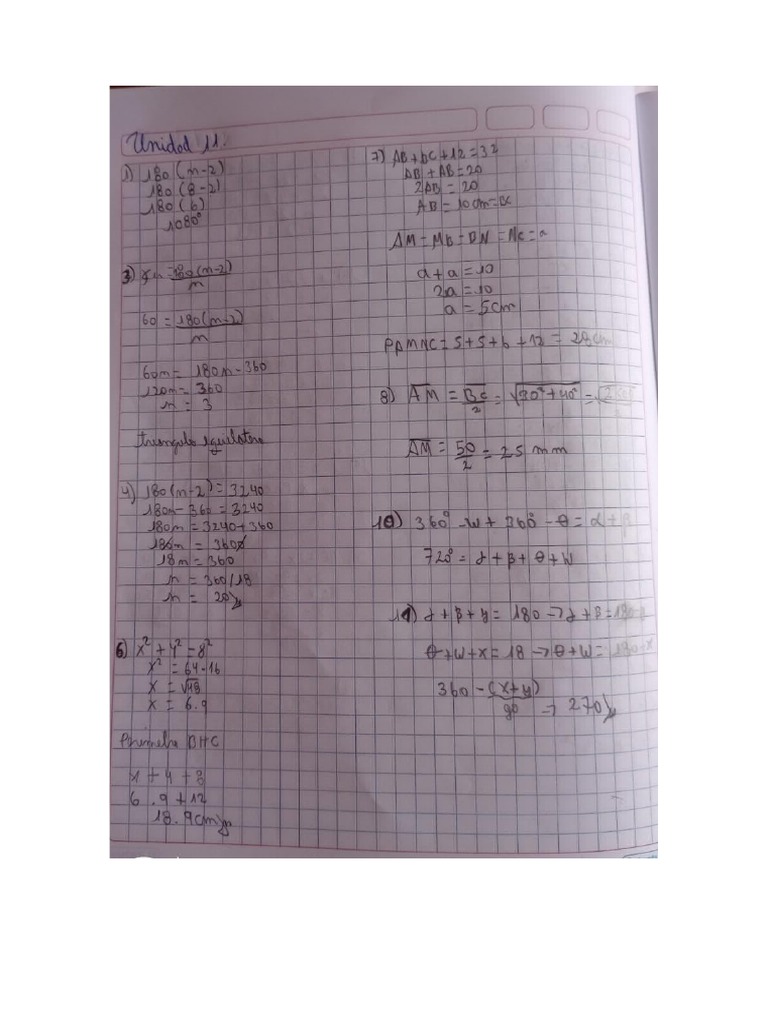 Unidad 11:
1) 180(n-2)
180(8-2)
180(6)
1080°
3) = 180(n-2)
n
60 = 180(n-2)
n
60n = 180n - 360
120n = 360
n = 3
triangulo equilatero
4) 180(n-2) = 3240
180n - 360 = 3240
180n = 3240 + 360
180n = 3600
18n = 360
n = 360/18
n = 20
6) x² + 4² = 8²
x² = 64 - 16
x = √48
x = 6.9
Perimetro BHC
x + 4 + 8
6.9 + 12
18.9cm
7) AB + BC + 12 = 32
AB + AB = 20
2AB = 20
AB = 10cm = BC
AM = MB = BN = NC = a
a + a = 10
2a = 10
a = 5cm
PAMNC = 5 + 5 + 6 + 12 = 28cm
8) AM = BC = √30² + 40² =
2
AM = 50 = 25 mm
2
10) 360° - w + 360° - θ = α + β
720° = α + β + θ + w
11) α + β + y = 180 → α + β = 180 - y
θ + w + x = 18 → θ + w = 180 - x
360 - (x+y)
90 → 270